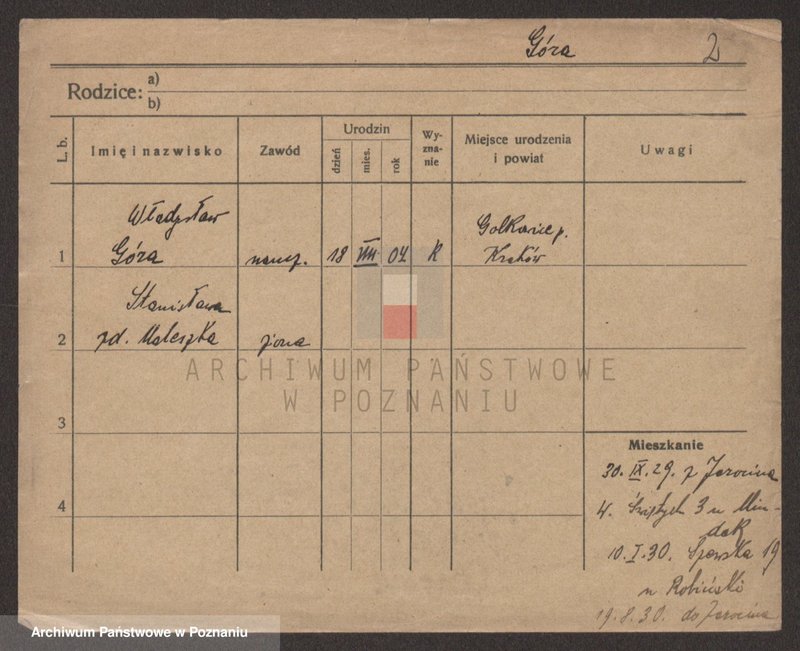 Góra 2
Rodzice: a)
b)
L. b.
Imię i nazwisko
Zawód
Urodzin
dzień
mies.
rok
Wy-
zna-
nie
Miejsce urodzenia
i powiat
Uwagi
Władysław
1 Góra naucz. 18 VIII 04 R
Golkowice p.
Kraków
Stanisława
2 zd. Maleszka żona
ARCHIWUM PAŃSTWOWE
W POZNANIU
3
Mieszkanie
30. IX. 29. z Jarocina
4
W. Świętych 3 u
10. I. 30. Szewska 19
u
19. 8. 30. do Jarocina
Archiwum Państwowe w Poznaniu